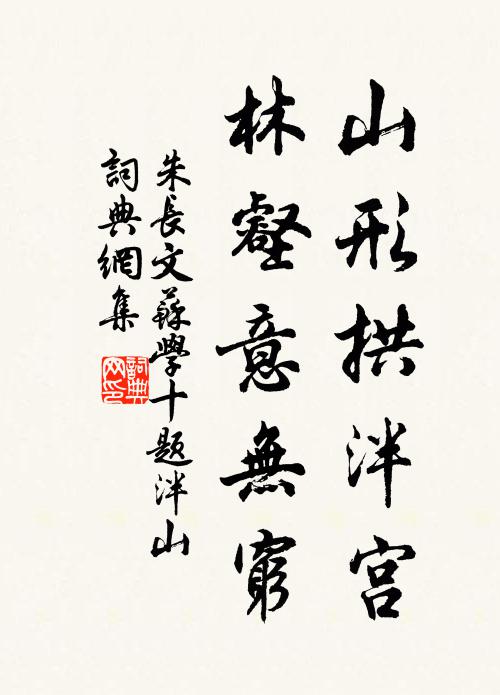 山形拱泮宮
林壑意無窮
朱長文蘇學十題泮山
詞典網集
詞典网印